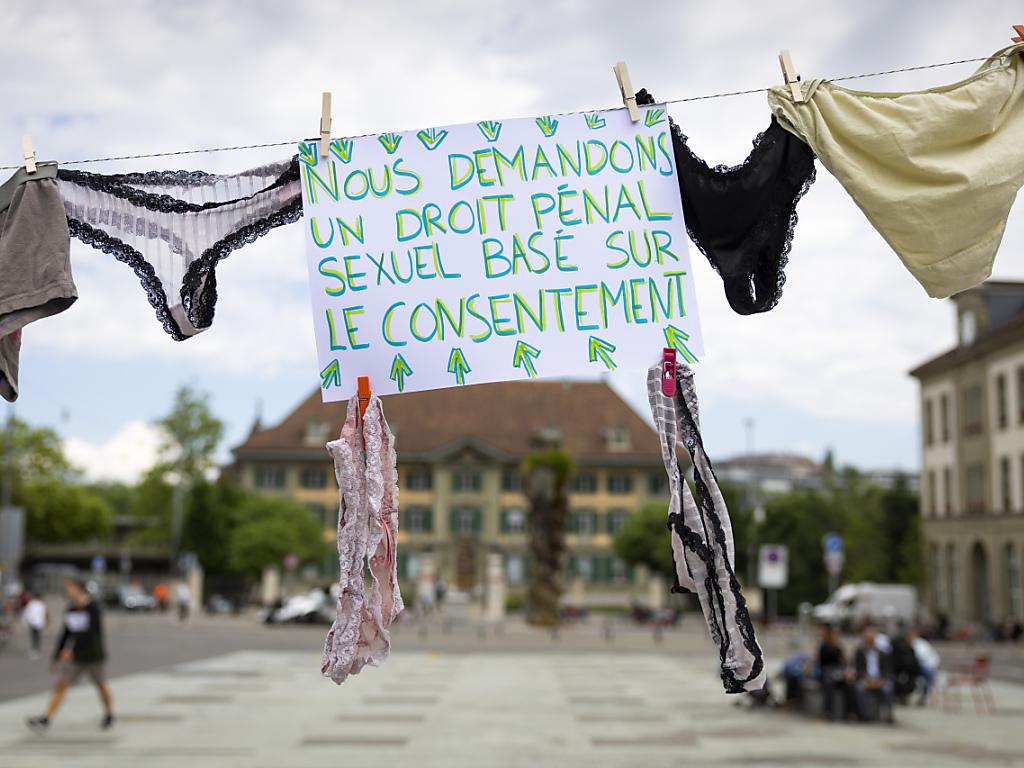 NOUS DEMANDONS
UN DROIT PÉNAL
SEXUEL BASÉ SUR
LE CONSENTEMENT